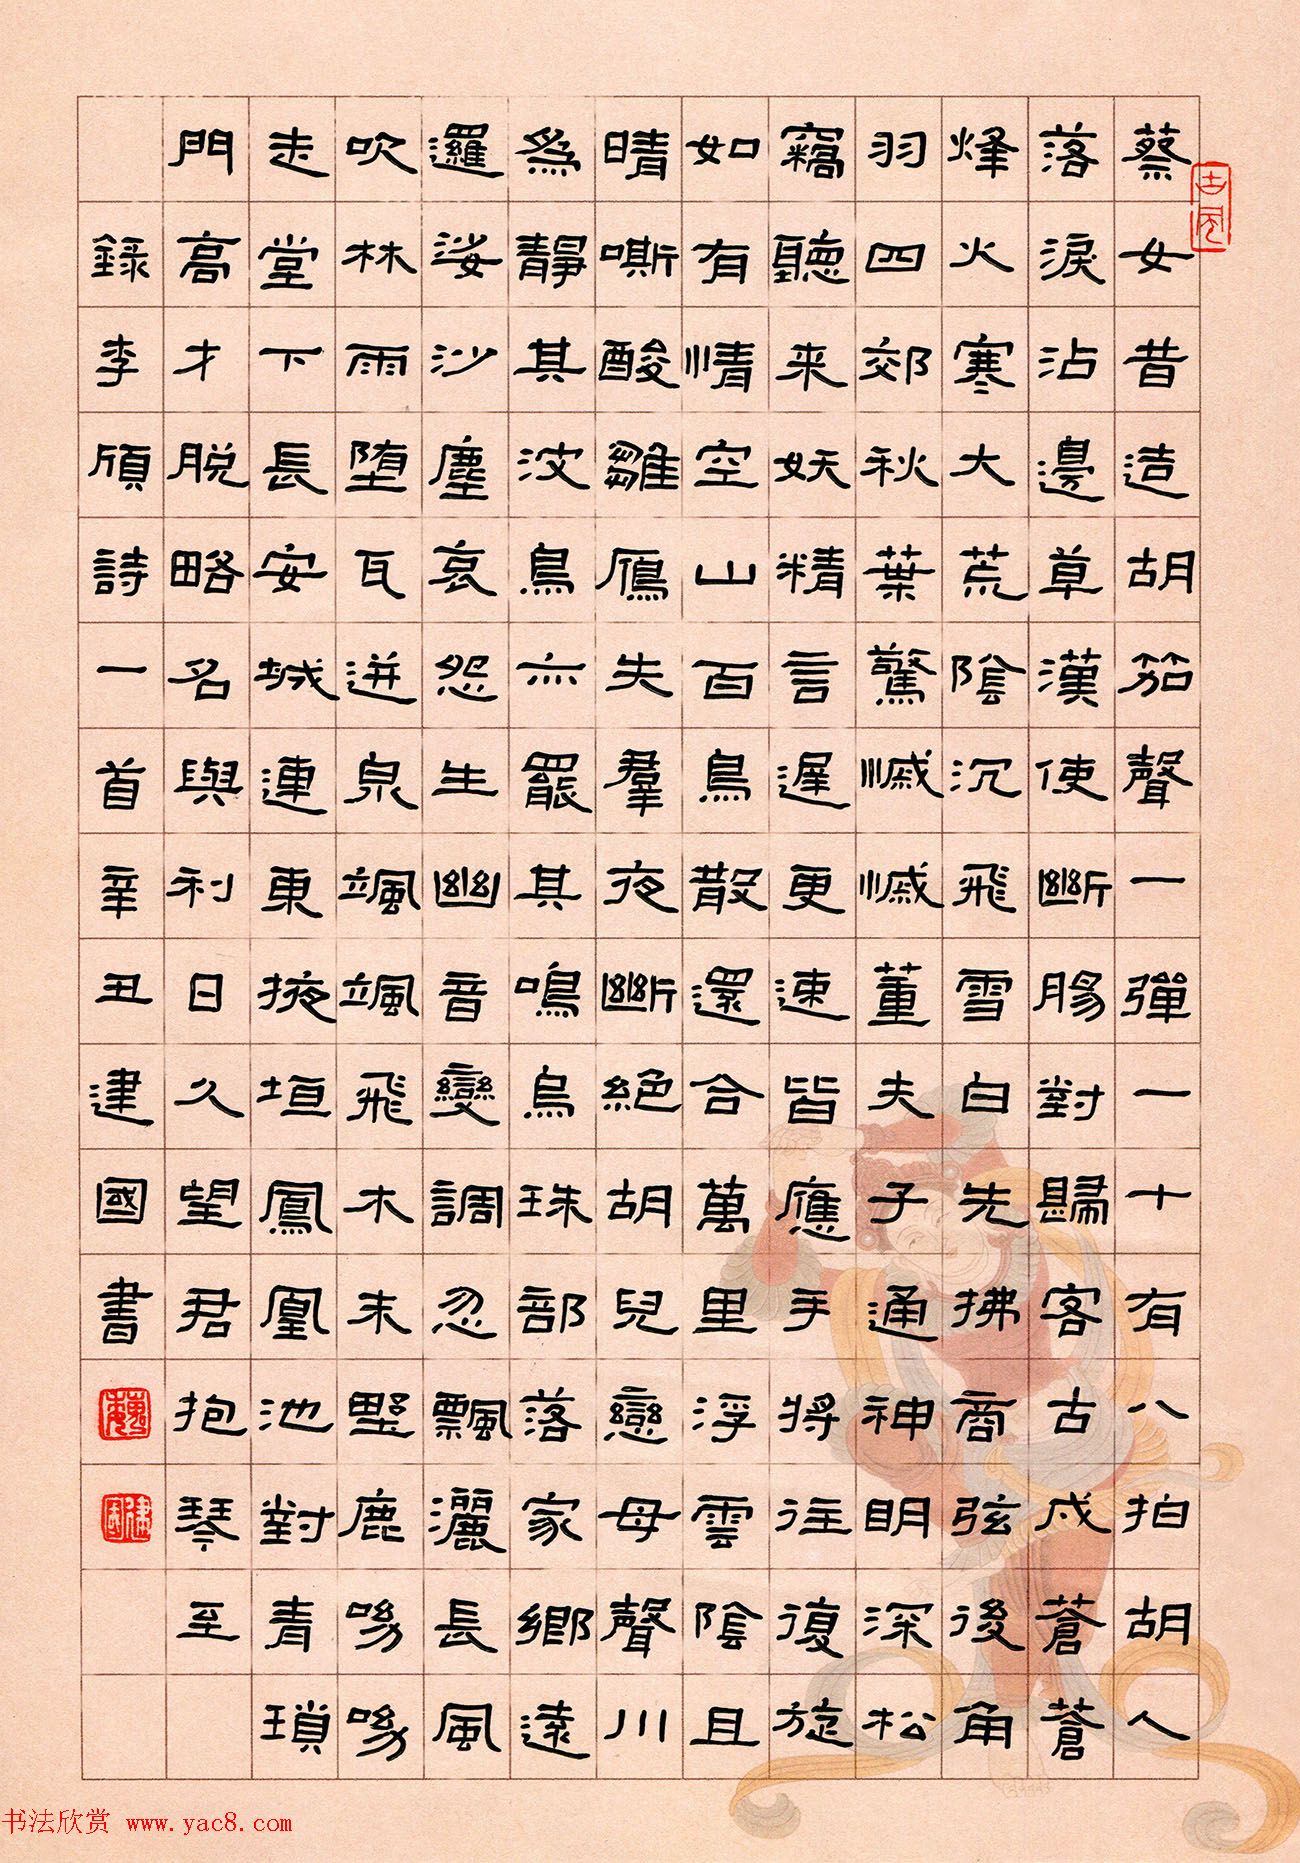 蔡女昔造胡笳聲一彈一十有八拍胡人
落淚沾邊草漢使斷腸對歸客古戍蒼蒼
烽火寒大荒陰沉飛雪白先拂商弦後角
羽四郊秋葉驚慽慽董夫子通神明深松
竊聽来妖精言遲更速皆應手將往復旋
如有情空山百鳥散還合萬里浮雲陰且
晴嘶酸雛鴈失羣夜斷絕胡兒戀母聲川
為靜其波鳥亦罷其鳴烏珠部落家鄉遠
邏娑沙塵哀怨生幽音變調忽飄灑長風
吹林雨堕瓦迸泉颯颯飛木末野鹿呦呦
走堂下長安城連東掖垣鳳凰池對青瑣
門高才脱略名與利日久望君抱琴至
錄李頎詩一首辛丑建國書
古風
魏
建國
书法欣赏 www.yac8.com